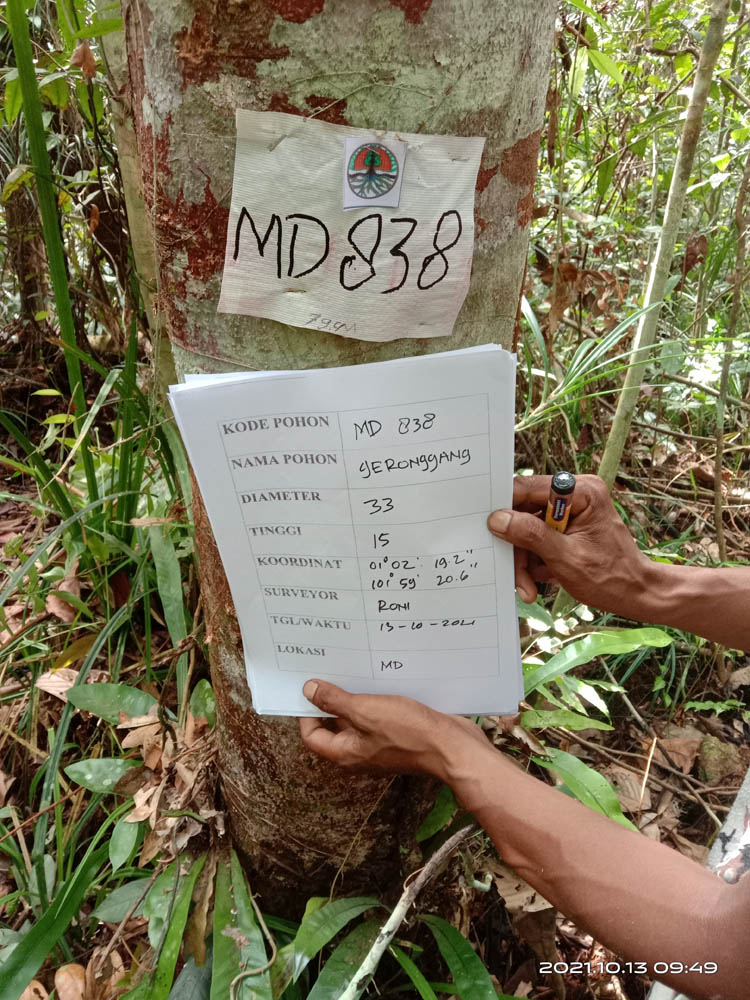 MD 838
KODE POHON MD 838
NAMA POHON GERONGGANG
DIAMETER 33
TINGGI 15
KOORDINAT 01° 02' 19.2"
101° 59' 20.6"
SURVEYOR RONI
TGL/WAKTU 13-10-2021
LOKASI MD
2021.10.13 09:49